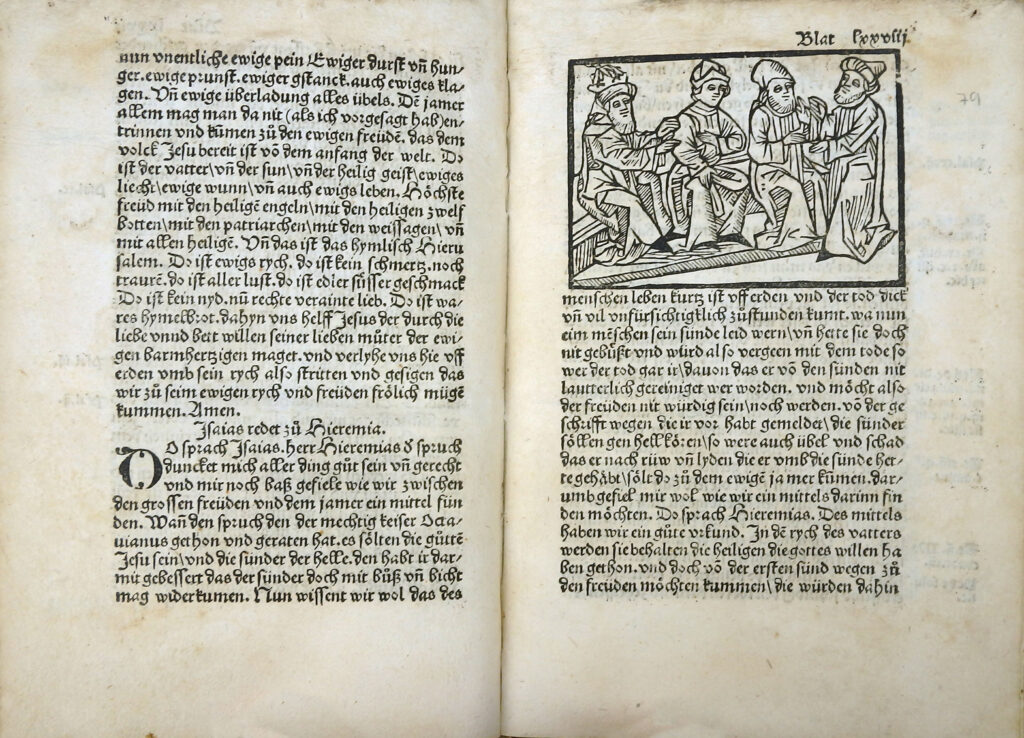 nun vnentliche ewige pein Ewiger durst vñ hun-
ger. ewige prunst. ewiger gstanck. auch ewiges kla-
gen. Vñ ewige überladung alles übels. Dẽ jamer
allem mag man da nit (als ich vorgesagt hab) en-
trinnen vnd kũmen zů den ewigen freüdẽ. das dem
volck Jesu bereit ist võ dem anfang der welt. Do
ist der vatter\vñ der sun\vñ der heilig geist\ewiges
liecht\ewige wunn\vñ auch ewigs leben. Höchste
freüd mit den heiligẽ engeln\mit den heiligen zwelf
botten\mit den patriarchen\mit den weissagen\ vñ
mit allen heiligẽ. Vñ das ist das hymlisch Hieru
salem. Do ist ewigs rych. do ist kein schmertz. noch
traurẽ. do ist aller lust. do ist edler süsser geschmack
Do ist kein nyd. nũ rechte verainte lieb. Do ist wa-
res hymelbrot. dahyn vns helff Jesus der durch die
liebe vnnd bett willen seiner lieben můter der ewi-
gen barmhertzigen maget. vnd verlyhe vns hie vff
erden vmb sein rych also stritten vnd gesigen das
wir zů seim ewigen rych vnd freüden frölich mügẽ
kummen. Amen.
Isaias redet zů Hieremia.
DO sprach Isaias. herr Hieremias d̄ spruch
duncket mich aller ding gůt sein vñ gerecht
vnd mir noch baß gefiele wie wir zwischen
den grossen freüden vnd dem jamer ein mittel fün
den. Wañ den spruch den der mechtig keiser Octa-
uianus gethon vnd geraten hat. es sölten die gůttẽ
Jesu sein\vnd die sünder der helle. den habt ir dar-
mit gebessert das der sünder doch mit bůß vñ bicht
mag widerkumen. Nun wissent wir wol das des
Blat lxxviij
79
menschen leben kurtz ist vff erden vnd der tod dick
vñ vil vnfürsichtigklich zůstunden kumt. wa nun
eim mẽschen sein sünde leid wern\vñ hette sie doch
nit gebüßt vnd würd also vergeen mit dem tode so
wer der tod gar ir\dauon das er võ den sünden nit
lautterlich gereiniget wer worden. vnd möcht also
der freüden nit würdig sein\noch werden. võ der ge
schrifft wegen die ir vor habt gemeldet\die sünder
söllen gen hell kören\so were auch übel vnd schad
das er nach rüw vñ lyden die er vmb die sünde het-
te gehäbt\sölt do zů dem ewigẽ jamer kũmen. dar-
umb gefiel mir wol wie wir ein mittels darinn fin
den möchten. Do sprach Hieremias. Des mittels
haben wir ein gůte vrkund. In dẽ rych des vatters
werden sie behalten die heiligen die gottes willen ha
ben gethon. vnd doch võ der ersten sünd wegen zů
den freüden möchten kummen\die würden dahin